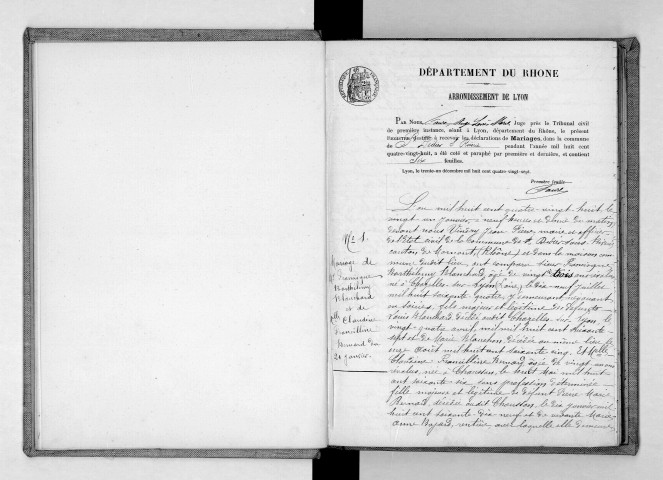 DÉPARTEMENT DU RHONE
ARRONDISSEMENT DE LYON
PAR NOUS, Juge près le Tribunal civil
de première instance, séant à Lyon, département du Rhône, le présent
registre, destiné à recevoir les déclarations de Mariages, dans la commune
de pendant l'année mil huit cent
quatre-vingt-huit, a été coté et paraphé par première et dernière, et contient
Six feuilles.
Lyon, le trente-un décembre mil huit cent quatre-vingt-sept.
Première feuille
Faure
L'an mil huit cent quatre-vingt huit le
vingt un janvier, à neuf heures et demie du matin,
devant nous Jean Pierre, maire et officier
de l'état civil de la commune de St
canton de Mornant, (Rhône) et dans la maison com
mune dudit lieu, ont comparu sieur Francisque
Barthélemy Blanchard, âgé de vingt trois ans révolus
né à Chazelles sur Lyon (Loire) le dix neuf juillet
mil huit cent soixante quatre, y demeurant négociant
en soieries, fils majeur et légitime de défunts
Louis Blanchard décédé audit Chazelles sur Lyon le
vingt-quatre avril mil huit cent soixante
sept et de Marie Blanchon décédée au même lieu le
onze août mil huit cent soixante cinq. Et Delle
Claudine Bernard âgée de vingt un ans
révolus, née à Chaussan, le huit Mai mil huit
cent soixante six sans profession déterminée
fille majeure et légitime de défunt Pierre Marie
Bernard, décédé audit Chaussan, le dix janvier mil
huit cent soixante dix neuf et de vivante Marie
Anne Bajard, rentière avec laquelle elle demeure
No 1.
Mariage de
Mr Francisque
Barthélemy
Blanchard
et de
Delle Claudine
Bernard du
21 janvier.